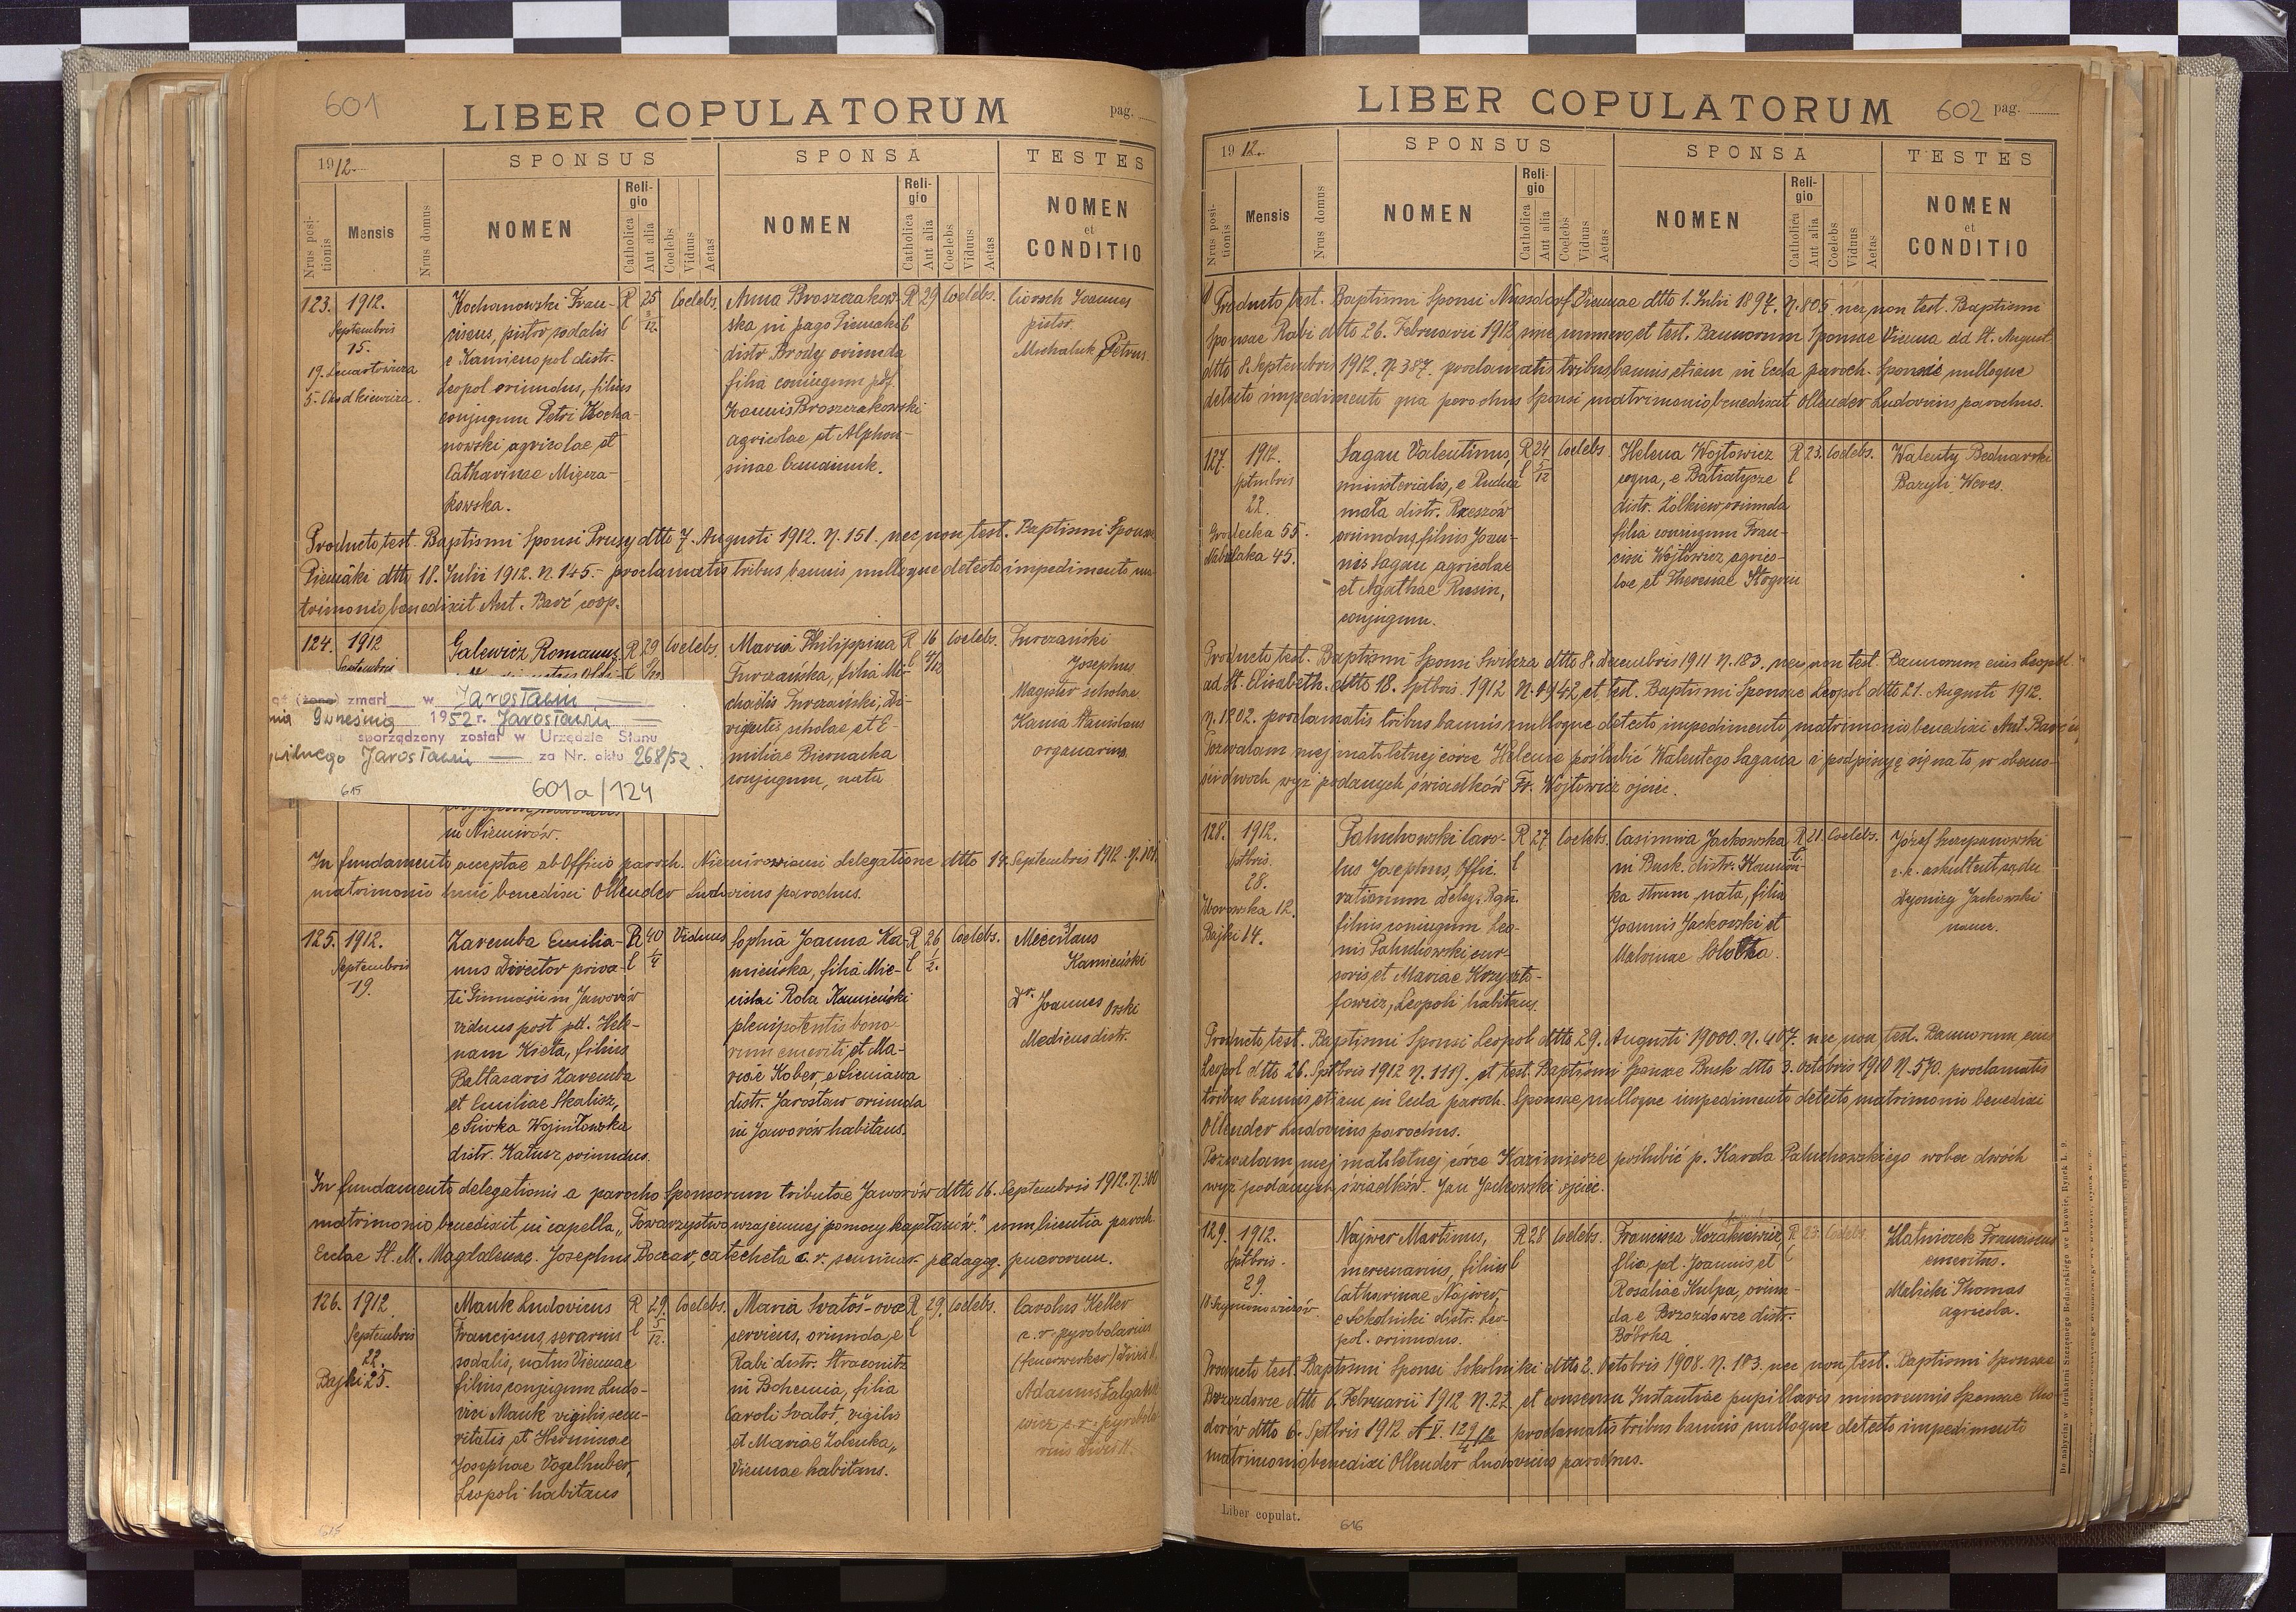 601
LIBER COPULATORUM
pag.
1912.
SPONSUS
SPONSA
TESTES
Nrus positionis
Mensis
Nrus domus
NOMEN
Religio
Catholica
Aut alia
Coelebs
Viduus
Aetas
NOMEN
Religio
Catholica
Aut alia
Coelebs
Viduus
Aetas
NOMEN
et
CONDITIO
123.
1912.
Septembris
15.
5. Chodkiewicza.
Kochanowski Fran-
ciscus, pistor, sodalis
e Kamienopol distr.
Leopol oriundus, filius
conjugum Petri Kocha-
nowski, agricolae et
Catharinae
kowska.
R
C
25
3/12.
Coelebs.
Anna Broszczakow-
ska in pago Pieniaki
distr. Brody oriunda
filia coniugum pdf.
Joannis Broszczakowski
agricolae et Alphon-
sinae
R
C
29
Coelebs.
Joannes
pistor.
Michaluk Petrus
Producto test. Baptismi Sponsi Prusy dtto 7. Augusti 1912. N. 151. nec non test. Baptismi Sponsae
Pieniaki dtto 18. Julii 1912. N. 145. proclamatis tribus bannis nulloque detecto impedimento ma-
trimonio benedixit Ant. Barć coop.
124.
1912
Septembris
Galewicz Romanus
R
29
Coelebs.
Maria Philippina
Turczańska, filia Mi-
chaëlis Turczański, Di-
rigentis scholae et E-
miliae Biernacka
conjugum, nata
R
C
16
Coelebs.
Turczański
Josephus
Magister scholae
Kania Stanislaus
organarius.
zmarł w Jarosławiu
9 września 1952 r. Jarosławiu
sporządzony został w Urzędzie Stanu
Jarosławiu za Nr. aktu 268/52.
615
601a/124
in Niemirów.
In fundamento acceptae ab Officio paroch. Niemiroviensi delegatione dtto 14. Septembris 1912.
matrimonio huic benedixi Ollender Ludovicus parochus.
125.
1912.
Septembris
19.
Zaremba Emilia-
nus Director priva-
ti Gimnasii in Jaworów
viduus post pd. Hele-
nam Kieta, filius
Baltasaris Zaremba
et Emiliae Skalisz,
e Siwka Wojniłowska
distr. Kałusz, oriundus.
R
C
40
1/4
Viduus
Sophia Joanna Ka-
mieńska, filia Mie-
cislai Rola Kamieński
plenipotentis bono-
rum emeriti et Ma-
riae Kober, e Sieniawa
distr. Jarosław oriunda
in Jaworów habitans.
R
C
26
1/2.
Coelebs.
Mecislaus
Kamieński
Dr. Joannes Orski
Medicus distr.
In fundamento delegationis a parocho Sponsorum tributae Jaworów dtto 16. Septembris 1912.
matrimonio benedixit in capella „Towarzystwa wzajemnej pomocy kapłanów." cum licentia paroch.
Eccliae St. M. Magdalenae. Josephus Boczar, catecheta c. r. seminar. pedagog. puerorum.
126.
1912.
Septembris
22.
Bajki 25.
Mauk Ludovicus
Franciscus, serarius
sodalis, natus Viennae
filius conjugum Ludo-
vici Mauk vigilis secu-
ritatis et Herminae
Josephae Vogelhuber,
Leopoli habitans
R
C
29.
5/12.
Coelebs.
Maria Svatoš-ova
serviens, oriunda, e
Rabi distr. Straconitz
in Bohemia, filia
Caroli Svatoš, vigilis
et Mariae Zolenka,
Viennae habitans.
R
C
29.
Coelebs.
Carolus Keller
c. r. pyrobolarius
(feuerwerker)
615
LIBER COPULATORUM
602
pag.
1912.
SPONSUS
SPONSA
TESTES
Nrus positionis
Mensis
Nrus domus
NOMEN
Religio
Catholica
Aut alia
Coelebs
Viduus
Aetas
NOMEN
Religio
Catholica
Aut alia
Coelebs
Viduus
Aetas
NOMEN
et
CONDITIO
Producto test. Baptismi Sponsi Nussdorf Viennae dtto 1. Julii 1897. N. 805 nec non test. Baptismi
Sponsae Rabi dtto 26. Februarii 1912 sine numero, et test. Bannorum Sponsae Vienna ad St. August.
dtto 8. Septembris 1912. N. 387. proclamatis tribus bannis etiam in Eccla paroch. Sponsi nulloque
detecto impedimento qua parochus Sponsi matrimonio benedixit Ollender Ludovicus parochus.
127.
1912.
22.
Grodecka 55.
45.
Sagan Valentinus,
ministerialis, e Rudna
mała distr. Rzeszów
oriundus, filius Joan-
nis Sagan agricolae
et Agathae Rusin,
conjugum.
R
C
24
5/12
Coelebs.
Helena Wojtowicz
coqua, e Batiatycze
distr. Żółkiew, oriunda
filia coniugum Fran-
cisci Wojtowicz, agrico-
lae et
R
C
23.
Coelebs.
Walenty Bednarski
Bazyli Weres.
Producto test. Baptismi Sponsi dtto 8. decembris 1911 N. 183. nec non test. Bannorum eius Leopol.
ad St. Elisabeth. dtto 18. Sptbris. 1912 N. et test. Baptismi Sponsae Leopol dtto 21. Augusti 1912.
N. 1202. proclamatis tribus bannis nulloque detecto impedimento, matrimonio benedixi Ant. Barć
Pozwalam mej małoletniej córce Helenie poślubić Walentego Sagana i podpisuję się na to, w obecno-
ści dwoch wyż podanych świadków Fr. Wojtowicz ojciec.
128.
1912.
Sptbris.
28.
12.
Bajki 14.
Paluchowski Caro-
lus Josephus,
filius coniugum Leo-
nis Paluchowski cur-
soris, et Mariae Krzyszto-
fowicz, Leopoli habitans.
R
C
27
Coelebs.
Casimira Jackowska
in Busk. distr. Kamion-
ka strum. nata, filia
Joannis Jackowski et
Malvinae
R
C
21.
Coelebs.
Józef Szczepanowski
c. k. auskultant sądu
Dyonizy Jackowski
naucz.
Producto test. Baptismi Sponsi Leopol dtto 29. Augusti 19000 N. 407. nec non test. Bannorum eius
Leopol dtto 26. Sptbris 1912 N. 1119. et test. Baptismi Sponsae Busk dtto 3. octobris 1910 N. 570. proclamatis
tribus bannis, etiam in Eccla paroch. Sponsae, nulloque impedimento detecto, matrimonio benedixi
Ollender Ludovicus parochus.
Pozwalam mej małoletniej córce Kazimierze poślubić p. Karola Paluchowskiego wobec dwóch
wyż podanych świadków. Jan Jackowski ojciec.
129.
1912.
Sptbris.
29.
Najwer Martinus,
mercenarius, filius
Catharinae Najwer,
e Sokolniki distr. Leo-
pol. oriundus.
R
C
28
Coelebs.
Francisca Kozakiewicz,
filia pd. Joannis, et
Rosaliae Kulpa, oriun-
da e Brzozdowce distr.
Bóbrka
R
C
23.
Coelebs.
Franciscus
emeritus.
Malicki Thomas
agricola.
Producto test. Baptismi Sponsi Sokolniki dtto 2. octobris 1908. N. 183. nec non test. Baptismi Sponsae
Brzozdowce dtto 6. Februarii 1912 N. 22 et consensu Instantiae pupillaris minorennis Sponsae Cho-
dorów dtto 6. Sptbris 1912 A V. 129/12 proclamatis tribus bannis nulloque detecto impedimento
matrimonio benedixi Ollender Ludovicus parochus.
Liber copulat.
616
Do nabycia w drukarni Szczęsnego Bednarskiego we Lwowie, Rynek L. 9.